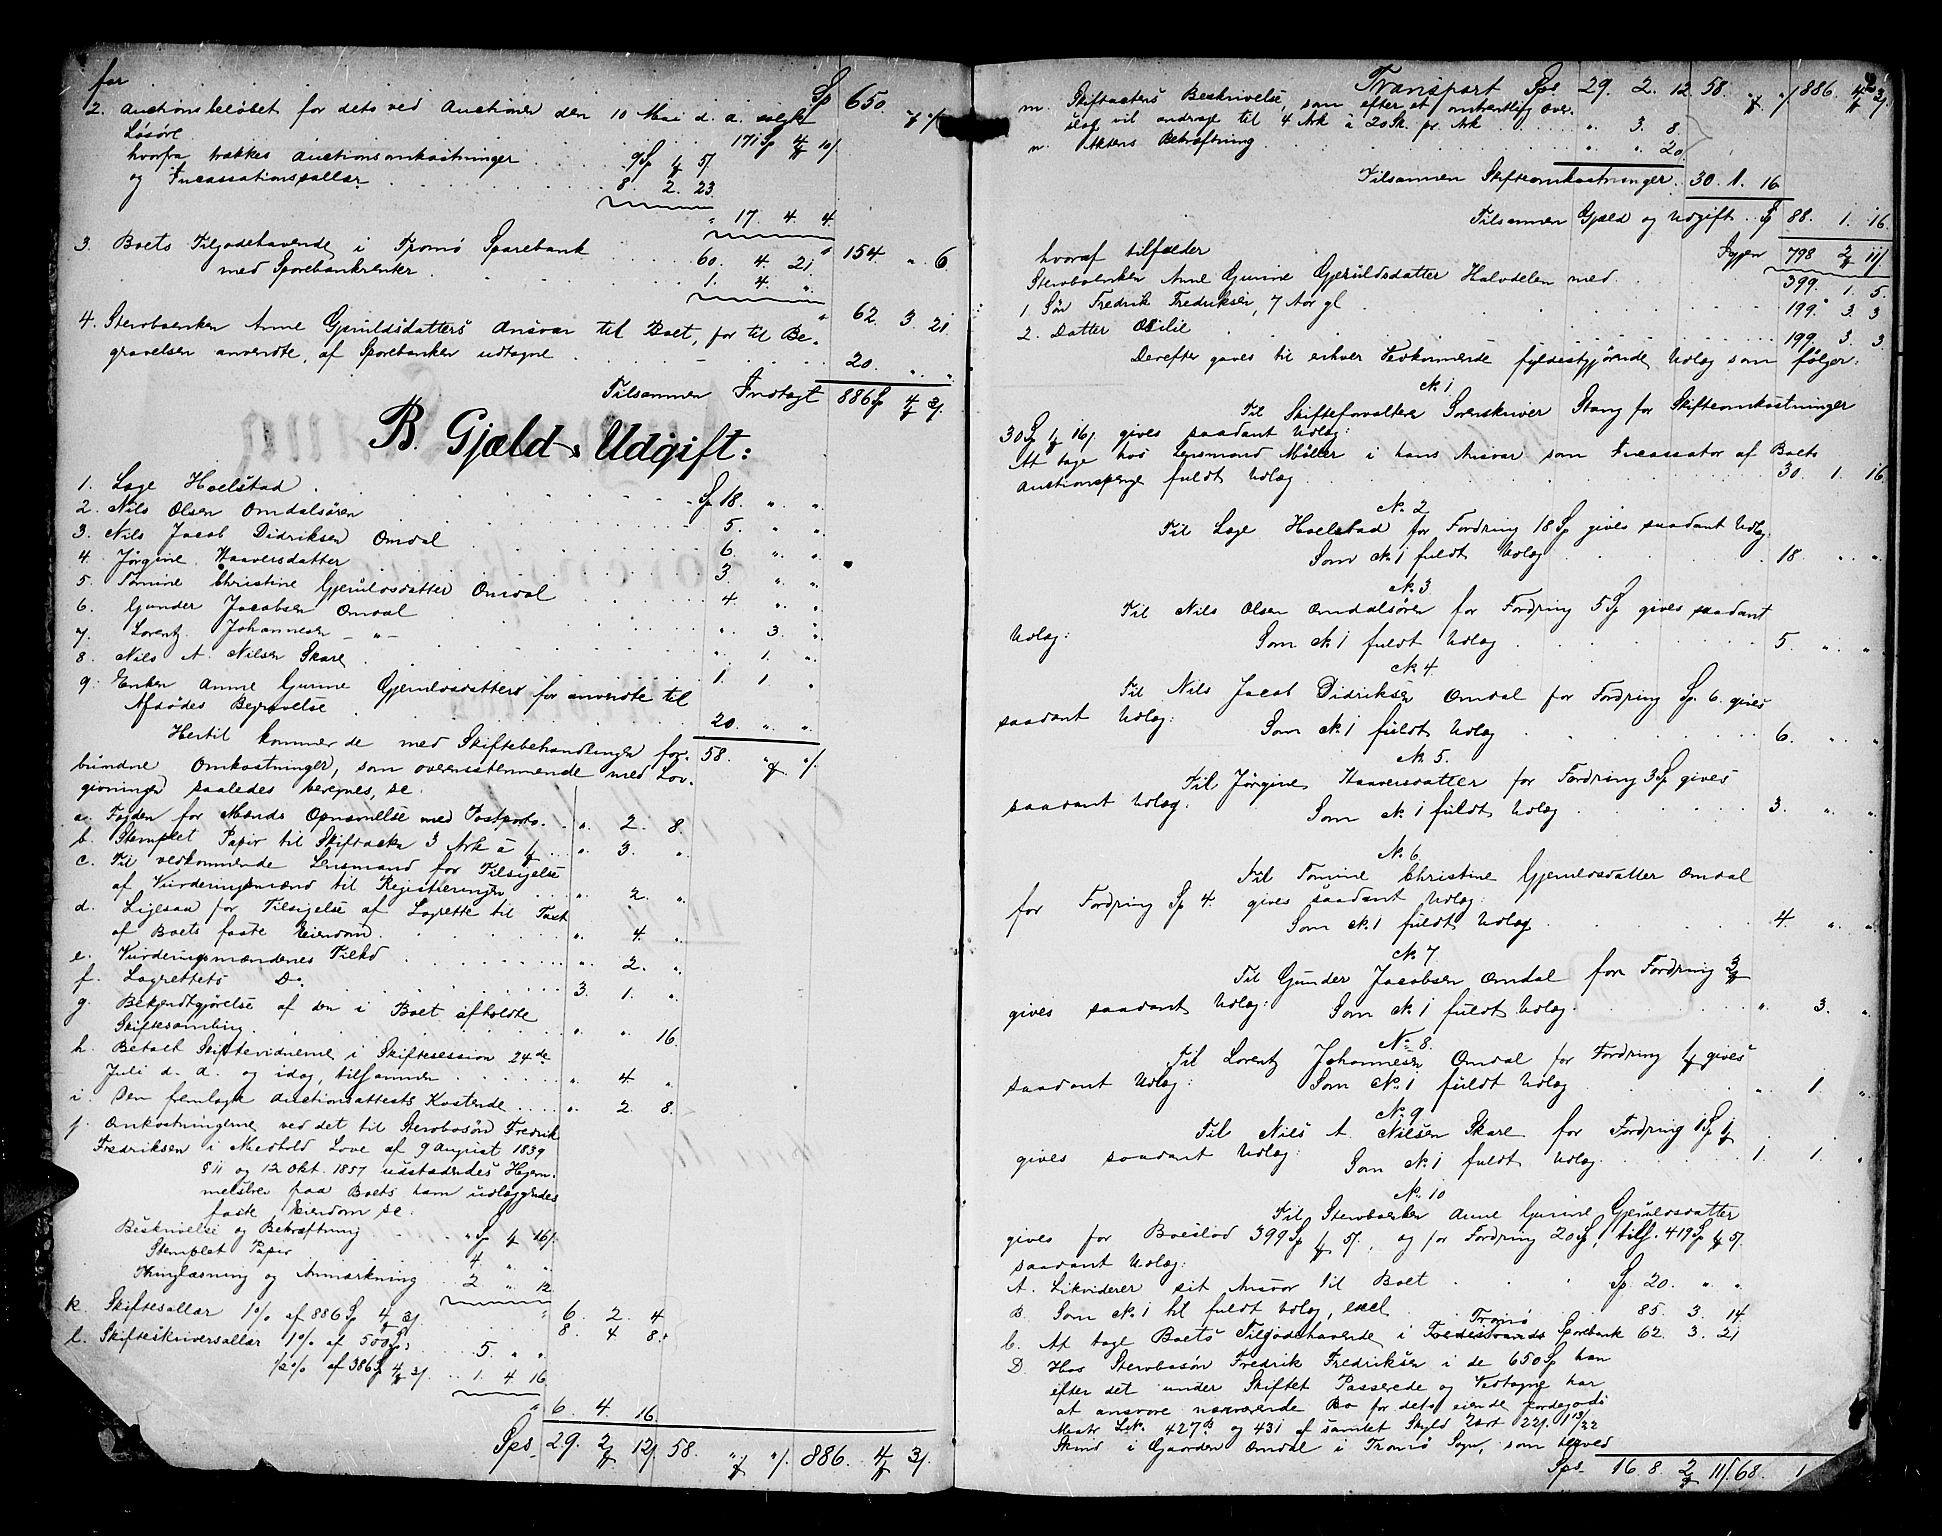 for Sp 650
2. Auctionsbeløbet for dets ved Auctionen den 10 Mai d. a. solgte
Løsøre 171 Sp 4 10/.
hvorfra trækkes Auctionsomkostninger 9 Sp 1 5/
og Incassationssallær 8. 2. 23
17. 4. 4.
154. " 6
3. Boets Tilgodehavende i Tromø Sparebank 60. 4. 21.
med Sparebankrenter 1. 4. "
62. 3. 21
4. Stervboenken Anne Gjeruldsdatters Ansvar til Boet, for til Be-
gravelsen anvendte, af Sparebanken udtagne 20. " "
Tilsammen Indtægt 886 Sp 4 3/.
B. Gjæld & Udgift:
1. Lage Hoelstad Sp 18. " "
2. Nils Olsen Omdalsøren 5. " "
3. Nils Jacob Didriksen Omdal 6. " "
4. Jørgine Haaversdatter 3. " "
5. Tomine Christine Gjeruldsdatter Omdal 4. " "
6. Gunder Jacobsen Omdal " 3. "
7. Lorentz Johannesen – " – " 1. "
8. Nils A. Nilsen Skare 1. 1. "
9. Enken Anne Gurine Gjeruldsdatters for anvendte til
Afdødes Begravelse 20. " "
58. " "/.
Hertil kommer de med Skiftebehandlingen for-
bundne Omkostninger, som overensstemmende med Lov-
givningen saaledes beregnes, se.
a. Fogden for Mænds Opnævnelse med Postporto " 2. 8.
b. Stemplet Papir til Skifteakten 3 Ark à 1 " 3. "
c. Til vedkommende Lensmand for Tilsigelse
af Vurderingsmænd til Registreringen " 2. "
d. Ligesaa for Tilsigelse af Lagrette til Taxt
af Boets faste Eiendom " 4. "
e. Vurderingsmændenes Tilkd " 2. "
f. Lagrettets Do 3. 1. "
g. Bekjendtgjørelse af den i Boet afholdte
Skiftesamling " " 16.
h. Betalt Skiftevidnerne i Skiftesession 24de
Juli d. a. og idag, tilsammen " 4. "
i. Den fremlagte Auctionsattests Kostende " 2. 8.
j. Omkostningerne ved det til Stervbosøn Fredrik
Fredriksen i Medhold Love af 9 August 1839
§ 11 og 12 Okt. 1857 udstædendes Hjem-
melsbrev paa Boets ham udlæggendes
faste Eiendom se.
Beskrivelse og Bekræftning " Sp 4 16/.
Stemplet Papir 4. " "
Thinglæsning og Anmærkning 2 " 12
6. 2. 4
k. Skiftesallær 1% af 886 Sp 4 3/. 8. 4 8.
l. Skifteskriversallær 1% af 500 Sp 5. " "
1/2 % af 386 Sp 4 3/. 1. 4 16
" 6. 4. 16
Sps 29. 2 12/. 58. " "/. 886. 4 3/.
Transport Sps 29. 2. 12 58. " "/ 886. 4 3/.
m. Skifteactens Beskrivelse, som efter et omtrentlig Over-
slag vil andrage til 4 Ark à 20 Sk. pr. Ark " 3. 8.
n. Aktens Bekræftning " " 20.
Tilsammen Skifteomkostninger 30. 1. 16
Tilsammen Gjæld og Udgift Sp 88. 1. 16.
Igjen 798 2 11/
hvoraf tilfalder
Stervboenken Anne Gurine Gjeruldsdatter Halvdelen med 399. 1. 5.
1. Søn Fredrik Fredriksen, 7 Aar gl 199. 3. 3
2. Datter Otilie 199. 3. 3.
Derefter gaves til enhver Vedkommende fyldestgjørende Udlæg som følger:
No 1
Til Skifteforvalteren Sorenskriver Stang for Skifteomkostninger
30 Sp 1 16/ gives saadant Udlæg:
At tage hos Lensmand Møller i hans Ansvar som Incassator af Boets
Auctionspenge fuldt Udlæg 30. 1. 16
No 2
Til Lage Hoelstad for Fordring 18 Sp gives saadant Udlæg
Som No 1 fuldt Udlæg 18 " "
No 3
Til Nils Olsen Omdalsøren for Fordring 5 Sp gives saadant
Udlæg:
Som No 1 fuldt Udlæg 5. " "
No 4.
Til Nils Jacob Didriksen Omdal for Fordring Sp. 6. gives
saadant Udlæg:
Som No 1 fuldt Udlæg 6. " "
No 5.
Til Jørgine Haaversdatter for Fordring 3 Sp gives
saadant Udlæg.
Som No 1 fuldt Udlæg 3. " "
No 6
Til Tomine Christine Gjeruldsdatter Omdal
for Fordring Sp 4. gives saadant Udlæg:
Som No 1 fuldt Udlæg 4. " "
No 7
Til Gunder Jacobsen Omdal for Fordring 3
gives saadant Udlæg:
Som No 1 fuldt Udlæg " 3. "
No 8.
Til Lorentz Johannesen Omdal for Fordring 1 gives
saadant Udlæg:
Som No 1 fuldt Udlæg " 1. "
No 9
Til Nils A. Nilsen Skare for Fordring 1 Sp 1
gives saadant Udlæg:
Som No 1 fuldt Udlæg 1. 1. "
No 10
Til Stervboenken Anne Gurine Gjeruldsdatter
gives for Boeslod 399 Sp 1 5/., og for Fordring 20 Sp, tils. 419 Sp 1 5/.
saadant Udlæg:
A. Likviderer sit Ansvar til Boet Sp. 20. " "
B. Som No 1 til fuldt Udlæg, 85. 3. 14
Tromø
C. At tage Boets Tilgodehavende i Sparebank 62. 3. 21
D Hos Stervbosøn Fredrik Fredriksen i de 650 Sp han
efter det under Skiftet Passerede og Vedtagne har
at ansvare nærværende Bo for dets eiende Jordegods
Matr. L.No. 427 B og 431 af samlet Skyld 22/. 1 13/22
Skind i Gaarden Omdal i Tromø Sogn, som herved
Sps 16 8. 2 11/. 68. 1